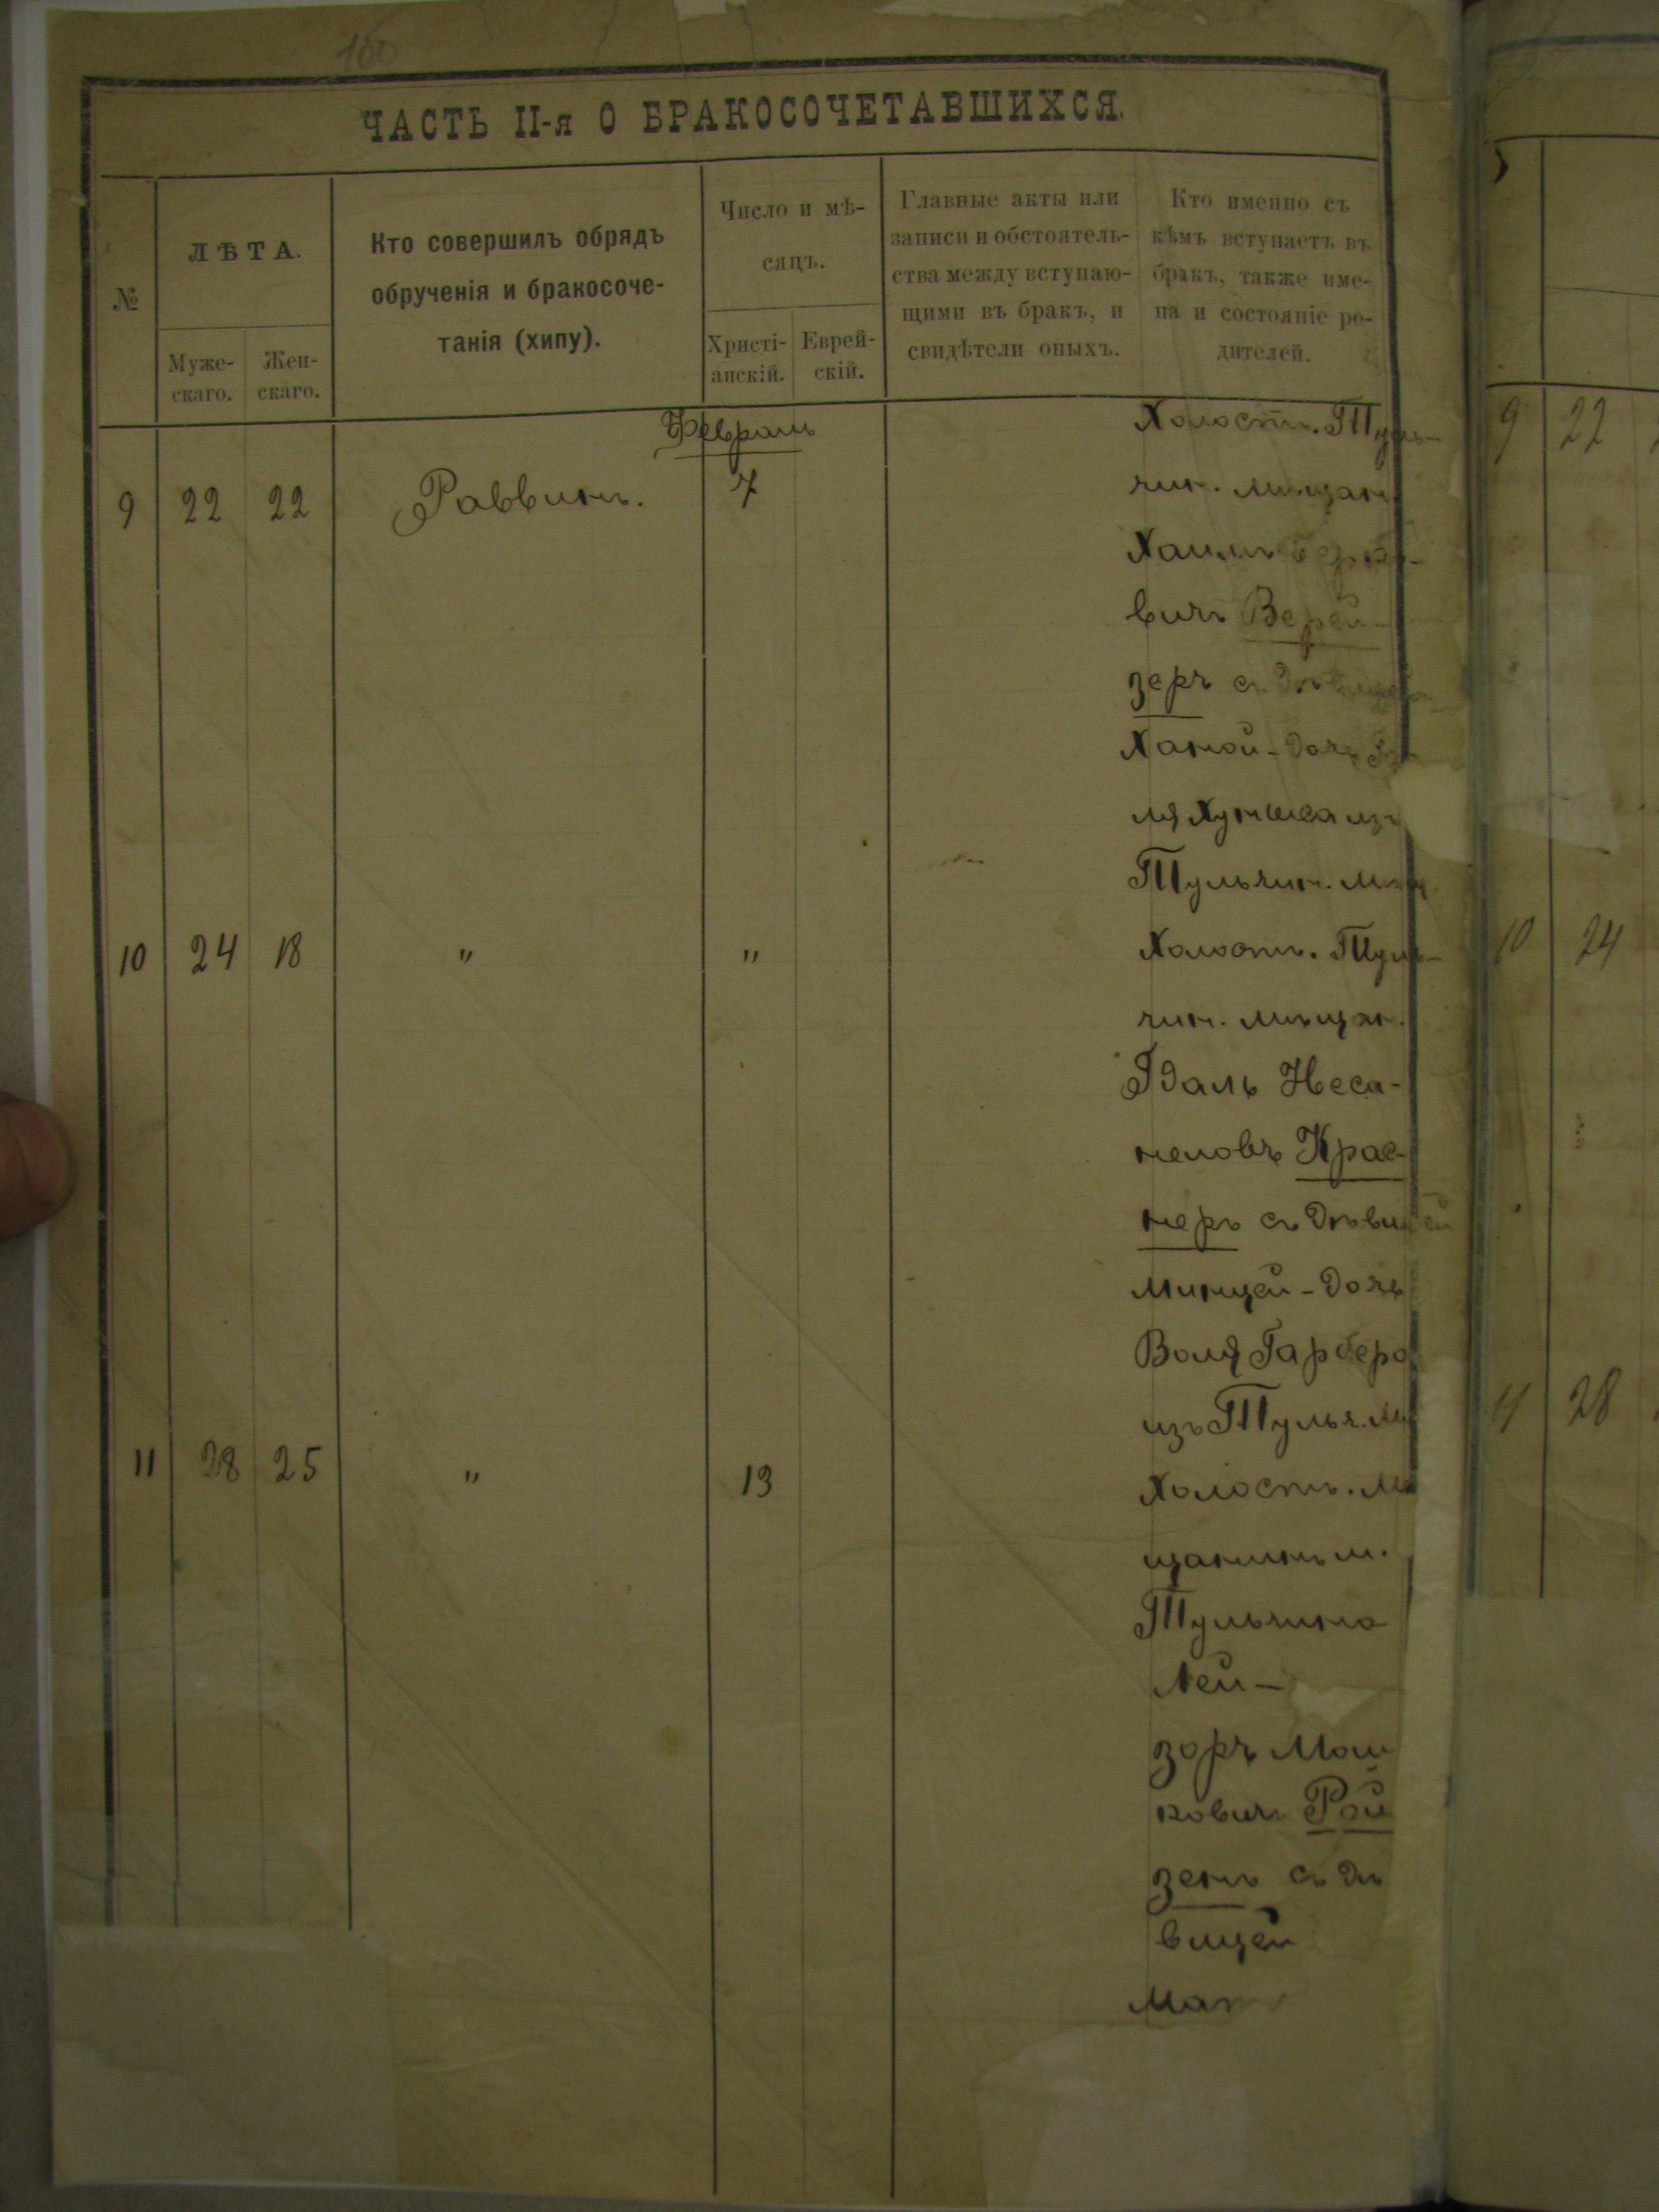 100
ЧАСТЬ II-я О БРАКОСОЧЕТАВШИХСЯ.
№
ЛѢТА.
Муже-
скаго.
Жен-
скаго.
Кто совершилъ обрядъ
обрученія и бракосоче-
танія (хипу).
Число и мѣ-
сяцъ.
Христі-
анскій.
Еврей-
скій.
Главные акты или
записи и обстоятель-
ства между вступаю-
щими въ бракъ, и
свидѣтели оныхъ.
Кто именно съ
кѣмъ вступаетъ въ
бракъ, также име-
на и состояніе ро-
дителей.
Февраль
9 22 22 Раввинъ. 7
Холост. Туль-
чин. мѣщан
Хаимъ
вичъ Верей-
зеръ съ
Ханой - дочь
ля из
Тульчин. мѣщ
10 24 18 " "
Холост. Туль-
чин. мѣщан.
Гдаль Неса-
неловъ Крас-
неръ съ дѣвицей
Минцей - дочь
Воля Гарбера
изъ Тульч. мѣ
11 28 25 " 13
Холост. мѣ
щанинъ м.
Тульчина
Лей-
зоръ Мош
ковичъ Рой
зенъ съ дѣ
вицей
Ман
9 22
10 24
11 28